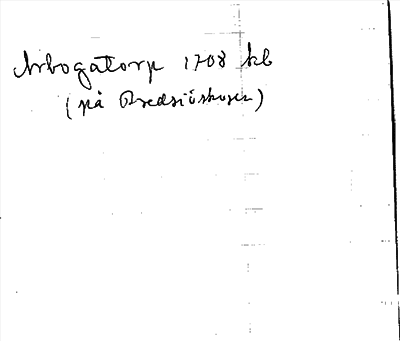 Arbogatorp 1708 kb
(på Bredsjöskogen)